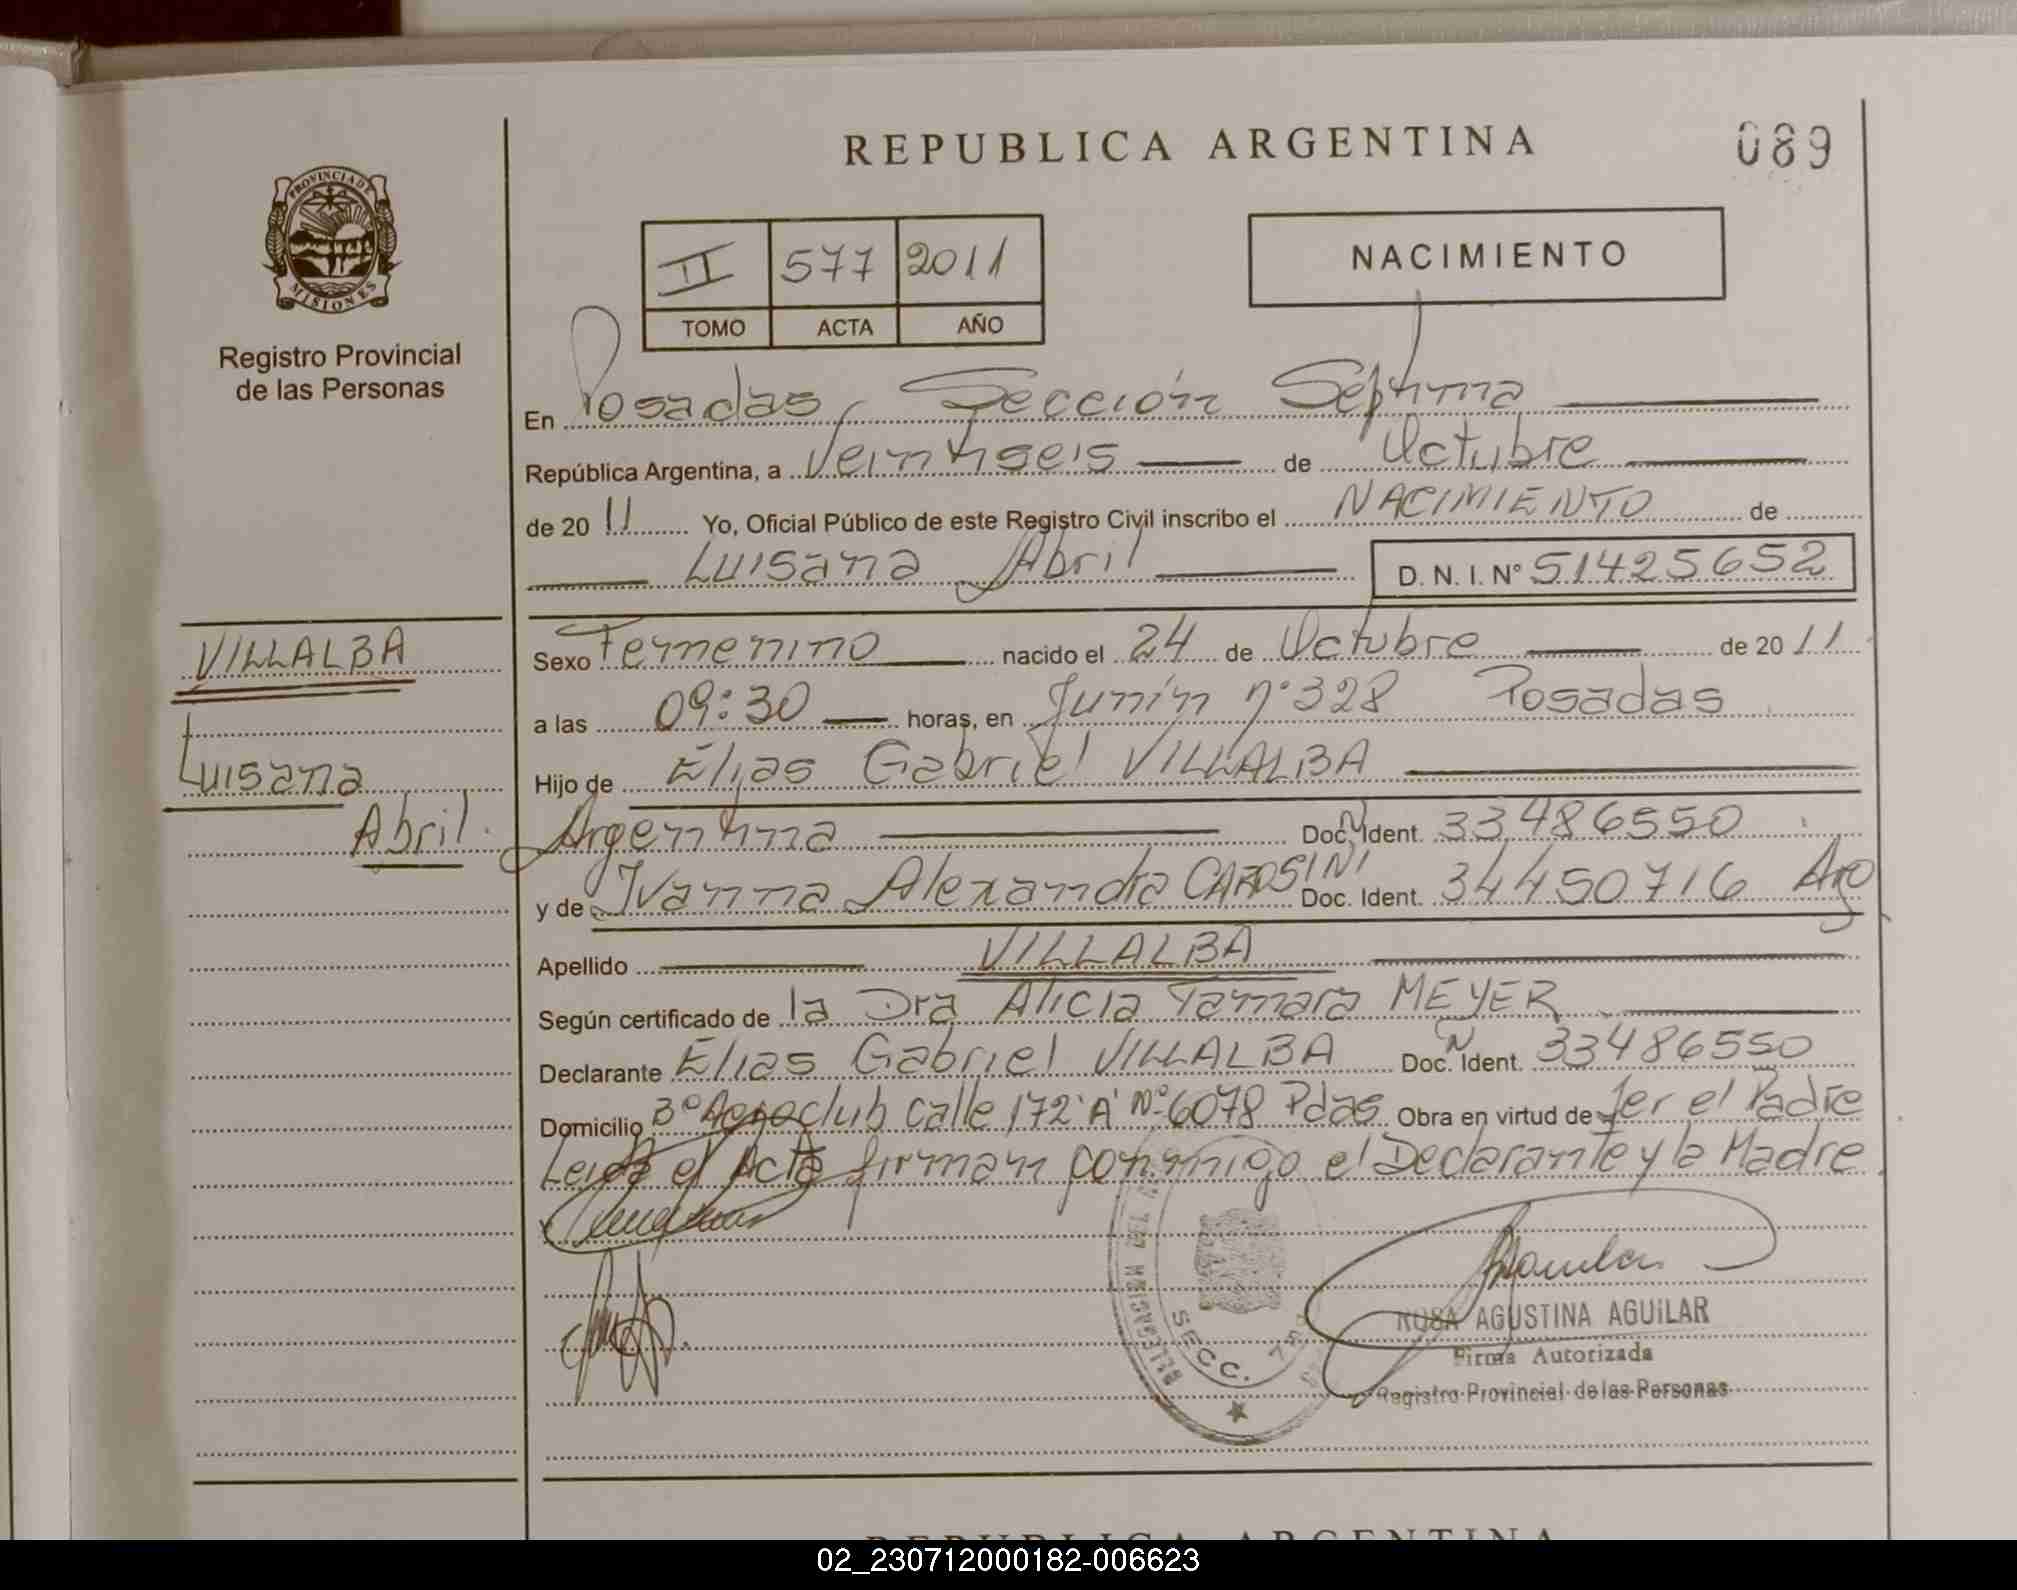 REPUBLICA ARGENTINA
089
PROVINCIA DE
MISIONES
Registro Provincial
de las Personas
II 577 2011
TOMO ACTA AÑO
NACIMIENTO
En Posadas, Sección Séptima
República Argentina, a Veintiseis de Octubre
de 2011 Yo, Oficial Público de este Registro Civil inscribo el NACIMIENTO de
Luisana Abril D.N.I. N° 51425652
VILLALBA
Luisana
Abril.
Sexo Femenino nacido el 24 de Octubre de 2011
a las 09:30 horas, en Junín n° 328 Posadas
Hijo de Elias Gabriel VILLALBA
Argentina Doc. N Ident. 33486550
y de Ivanna Alexandra Doc. Ident. 34450716 Arg
Apellido VILLALBA
Según certificado de la Dra Alicia Tamara MEYER
Declarante Elias Gabriel VILLALBA Doc. N Ident. 33486550
Domicilio B° Aeroclub calle 172 'A' N° 6078 Pdas. Obra en virtud de Ser el Padre
Leida el Acta firman conmigo el Declarante y la Madre.
SECC. 7
ROSA AGUSTINA AGUILAR
Firma Autorizada
Registro Provincial de las Personas
REPUBLICA ARGENTINA
02_230712000182-006623